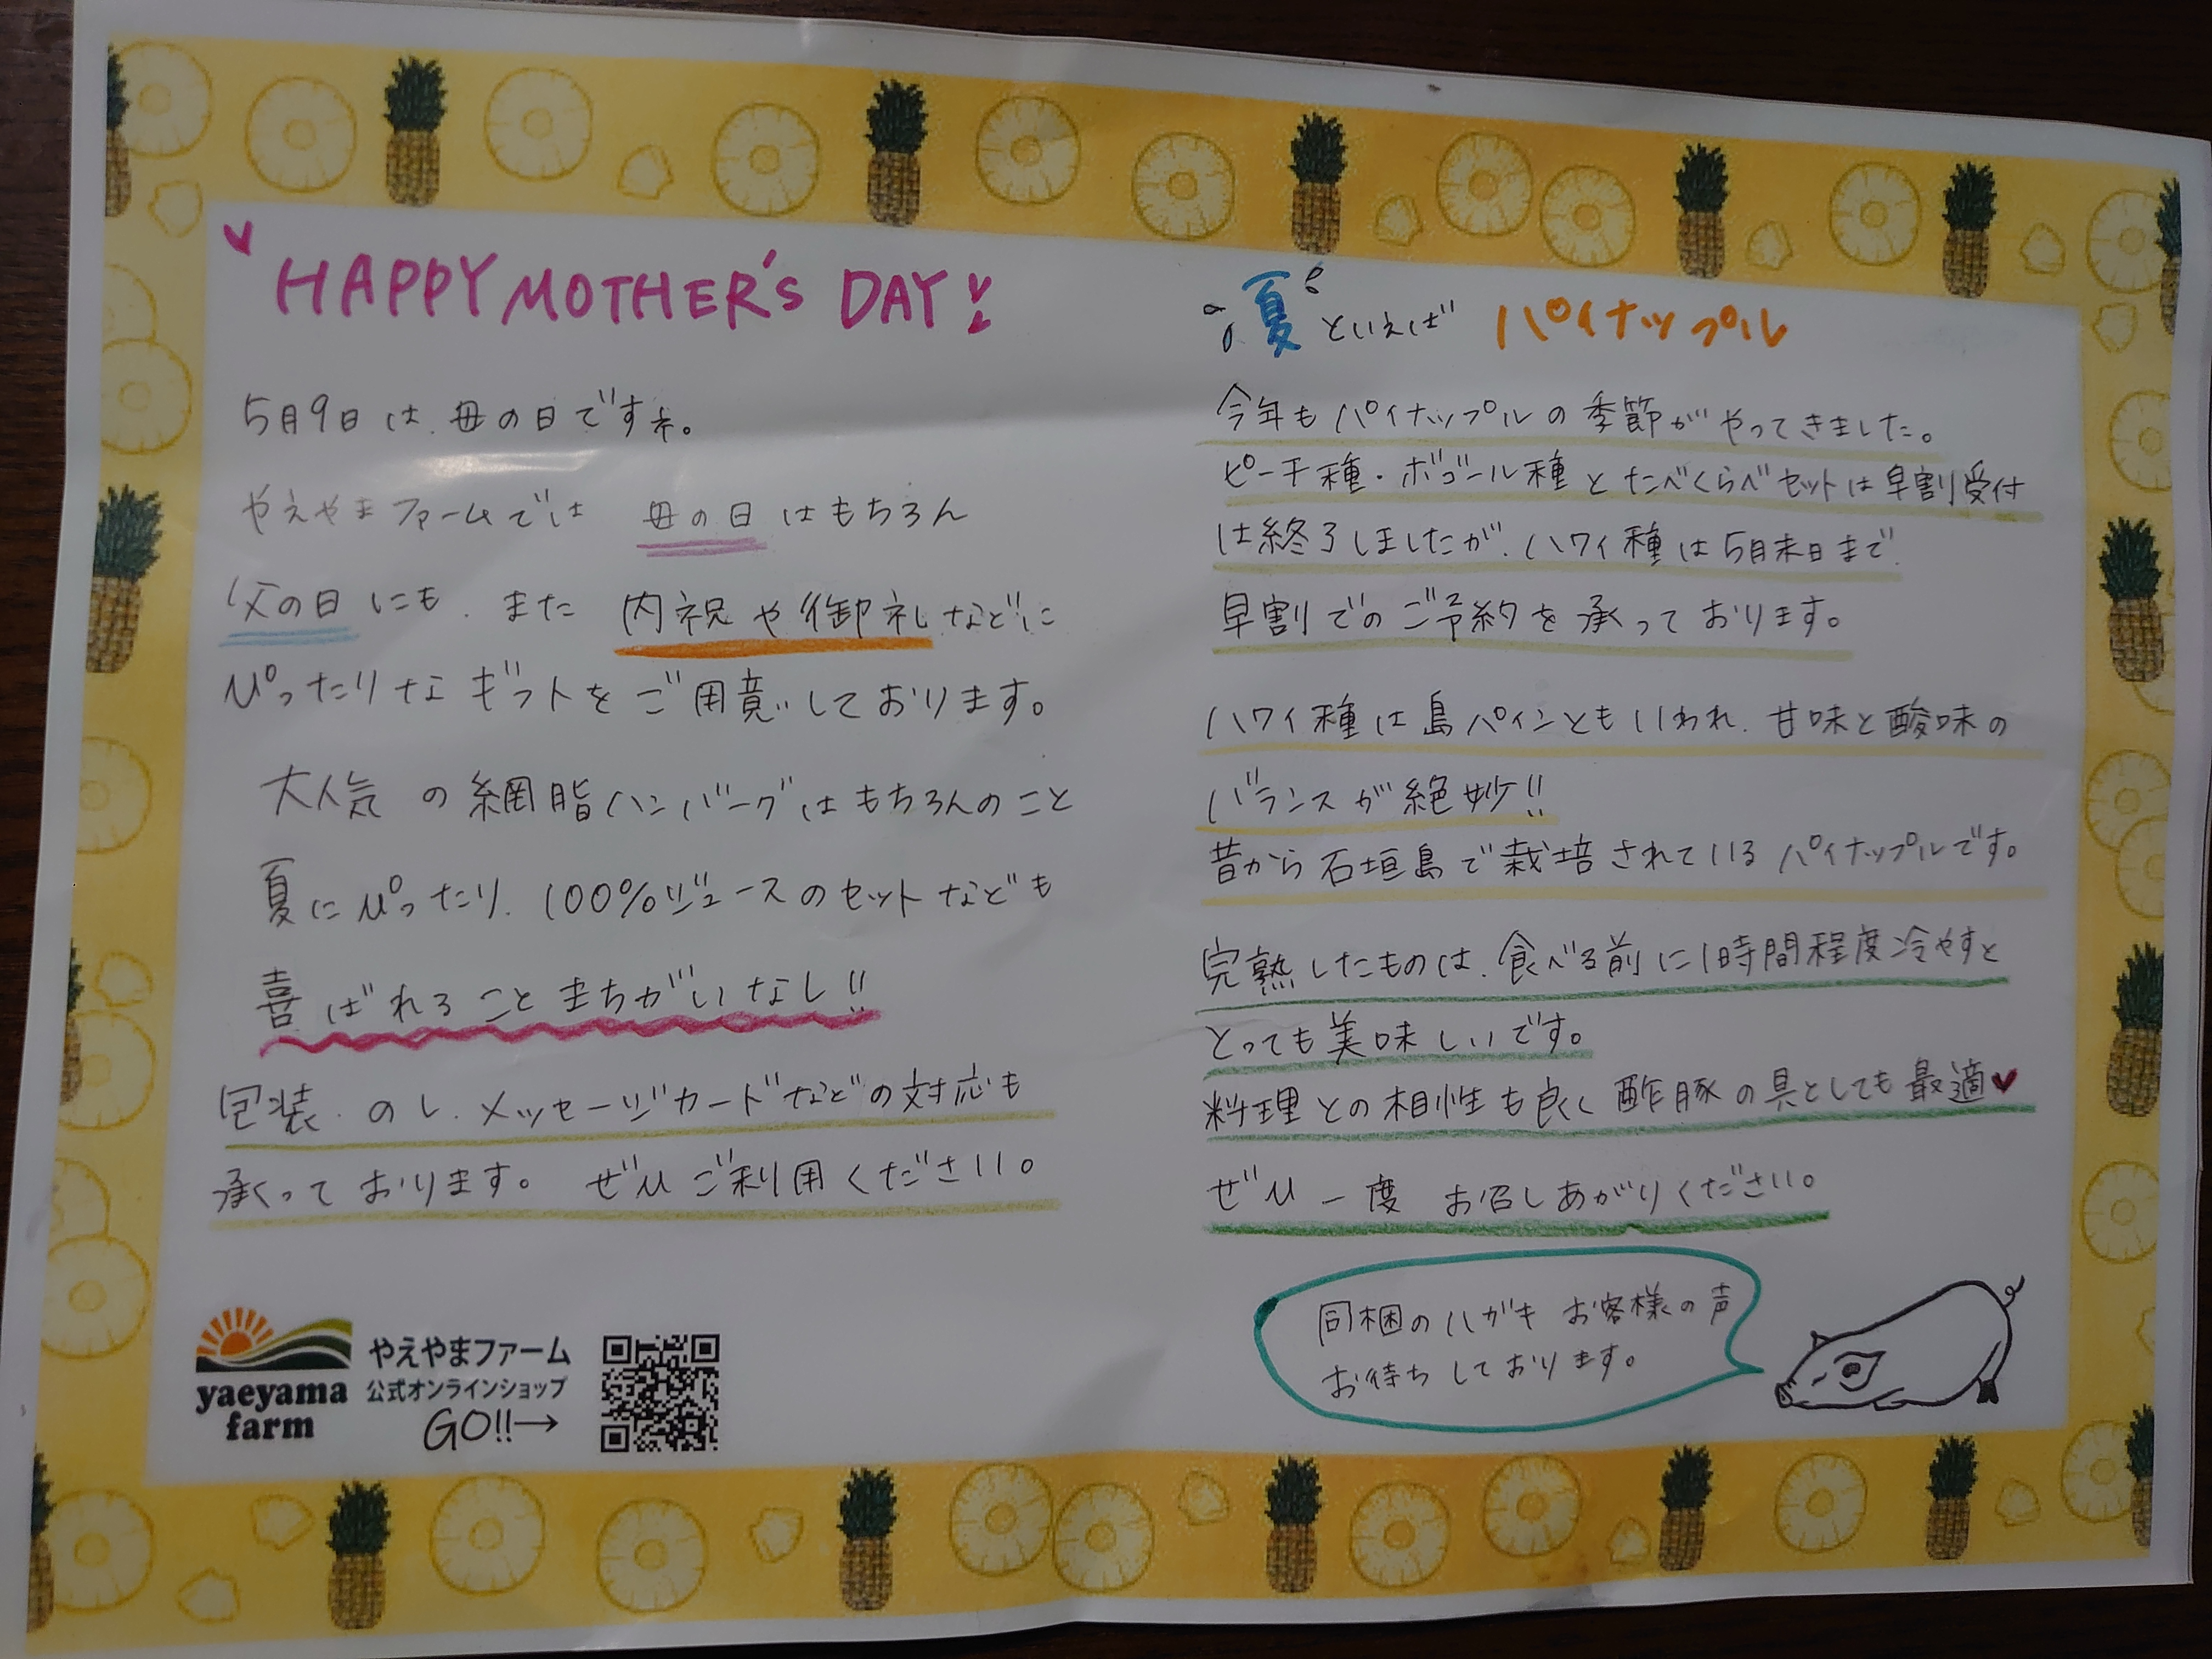 HAPPY MOTHER'S DAY!
5月9日は、母の日ですネ。
やえやまファームでは 母の日はもちろん
父の日にも、また 内祝や御礼などに
ぴったりなギフトをご用意しております。
大人気の網脂ハンバーグはもちろんのこと
夏にぴったり、100%ジュースのセットなども
喜ばれることまちがいなし!!
包装、のし、メッセージカードなどの対応も
承くっております。 ぜひご利用ください。
yaeyama
farm
やえやまファーム
公式オンラインショップ
GO!!→
夏といえば パイナップル
今年もパイナップルの季節がやってきました。
ピーチ種・ボゴール種とたべくらべセットは早割受付
は終了しましたが、ハワイ種は5月末日まで、
早割でのご予約を承っております。
ハワイ種は島パインともいわれ、甘味と酸味の
バランスが絶妙!!
昔から石垣島で栽培されているパイナップルです。
完熟したものは、食べる前に1時間程度冷やすと
とっても美味しいです。
料理との相性も良く酢豚の具としても最適♥
ぜひ一度 お召しあがりください。
同梱のハガキ お客様の声
お待ちしております。